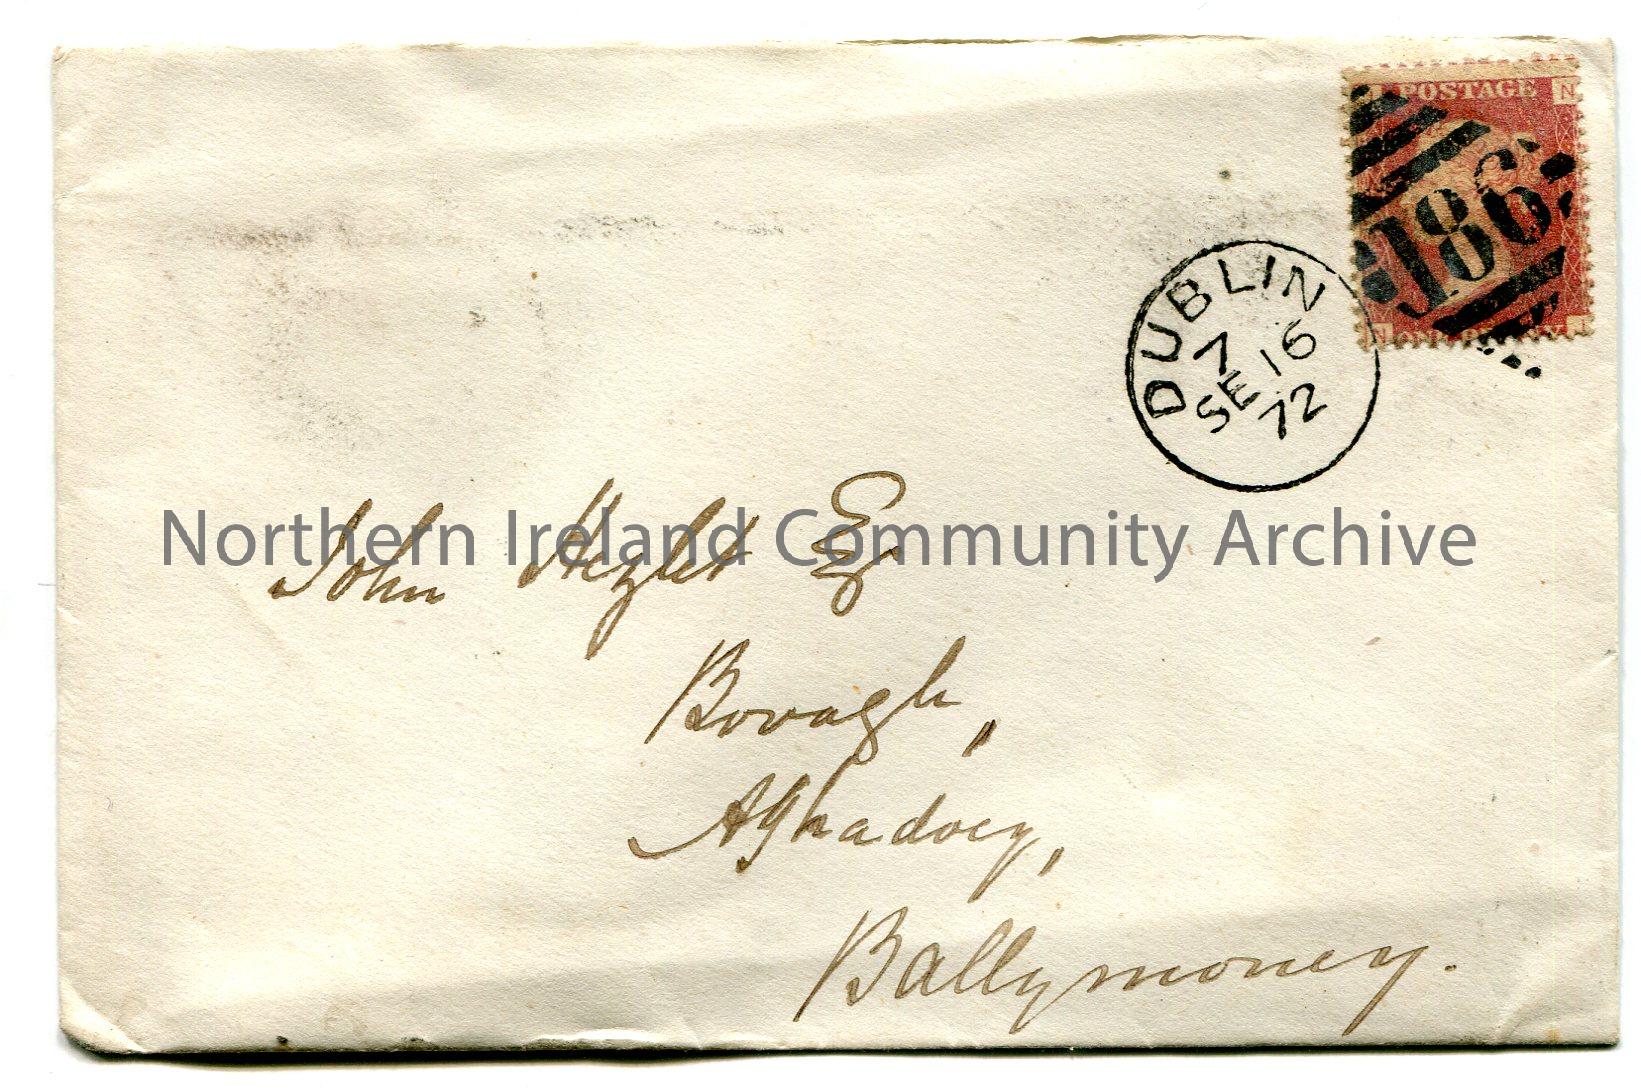 POSTAGE
N
186
DUBLIN
7
SE 16
72
ONE PENNY
John Hezlet Esq
Northern Ireland Community Archive
Bovagh,
Aghadoey,
Ballymoney.